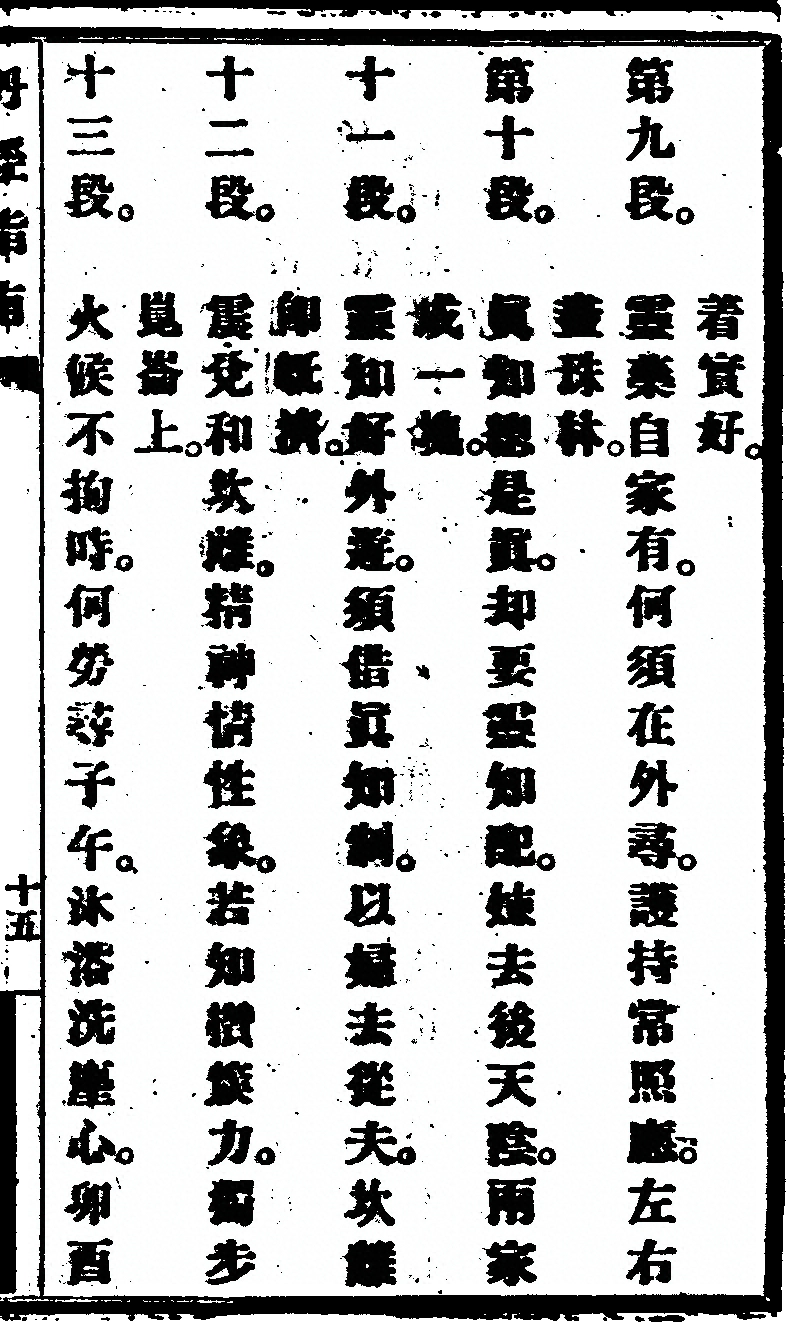 着實好。
第九段。 靈藥自家有。何須在外尋。護持常照應。左右
盡珠林。
第十段。 眞知總是眞。却要靈知配。煉去後天陰。兩家
成一塊。
十一段。 靈知好外遊。須借眞知制。以婦去從夫。坎離
卽旣濟。
十二段。 震兌和坎離。精神情性象。若知攢簇力。獨步
崑崙上。
十三段。 火候不拘時。何勞尋子午。沐浴洗塵心。卯酉
丹經指南
十五